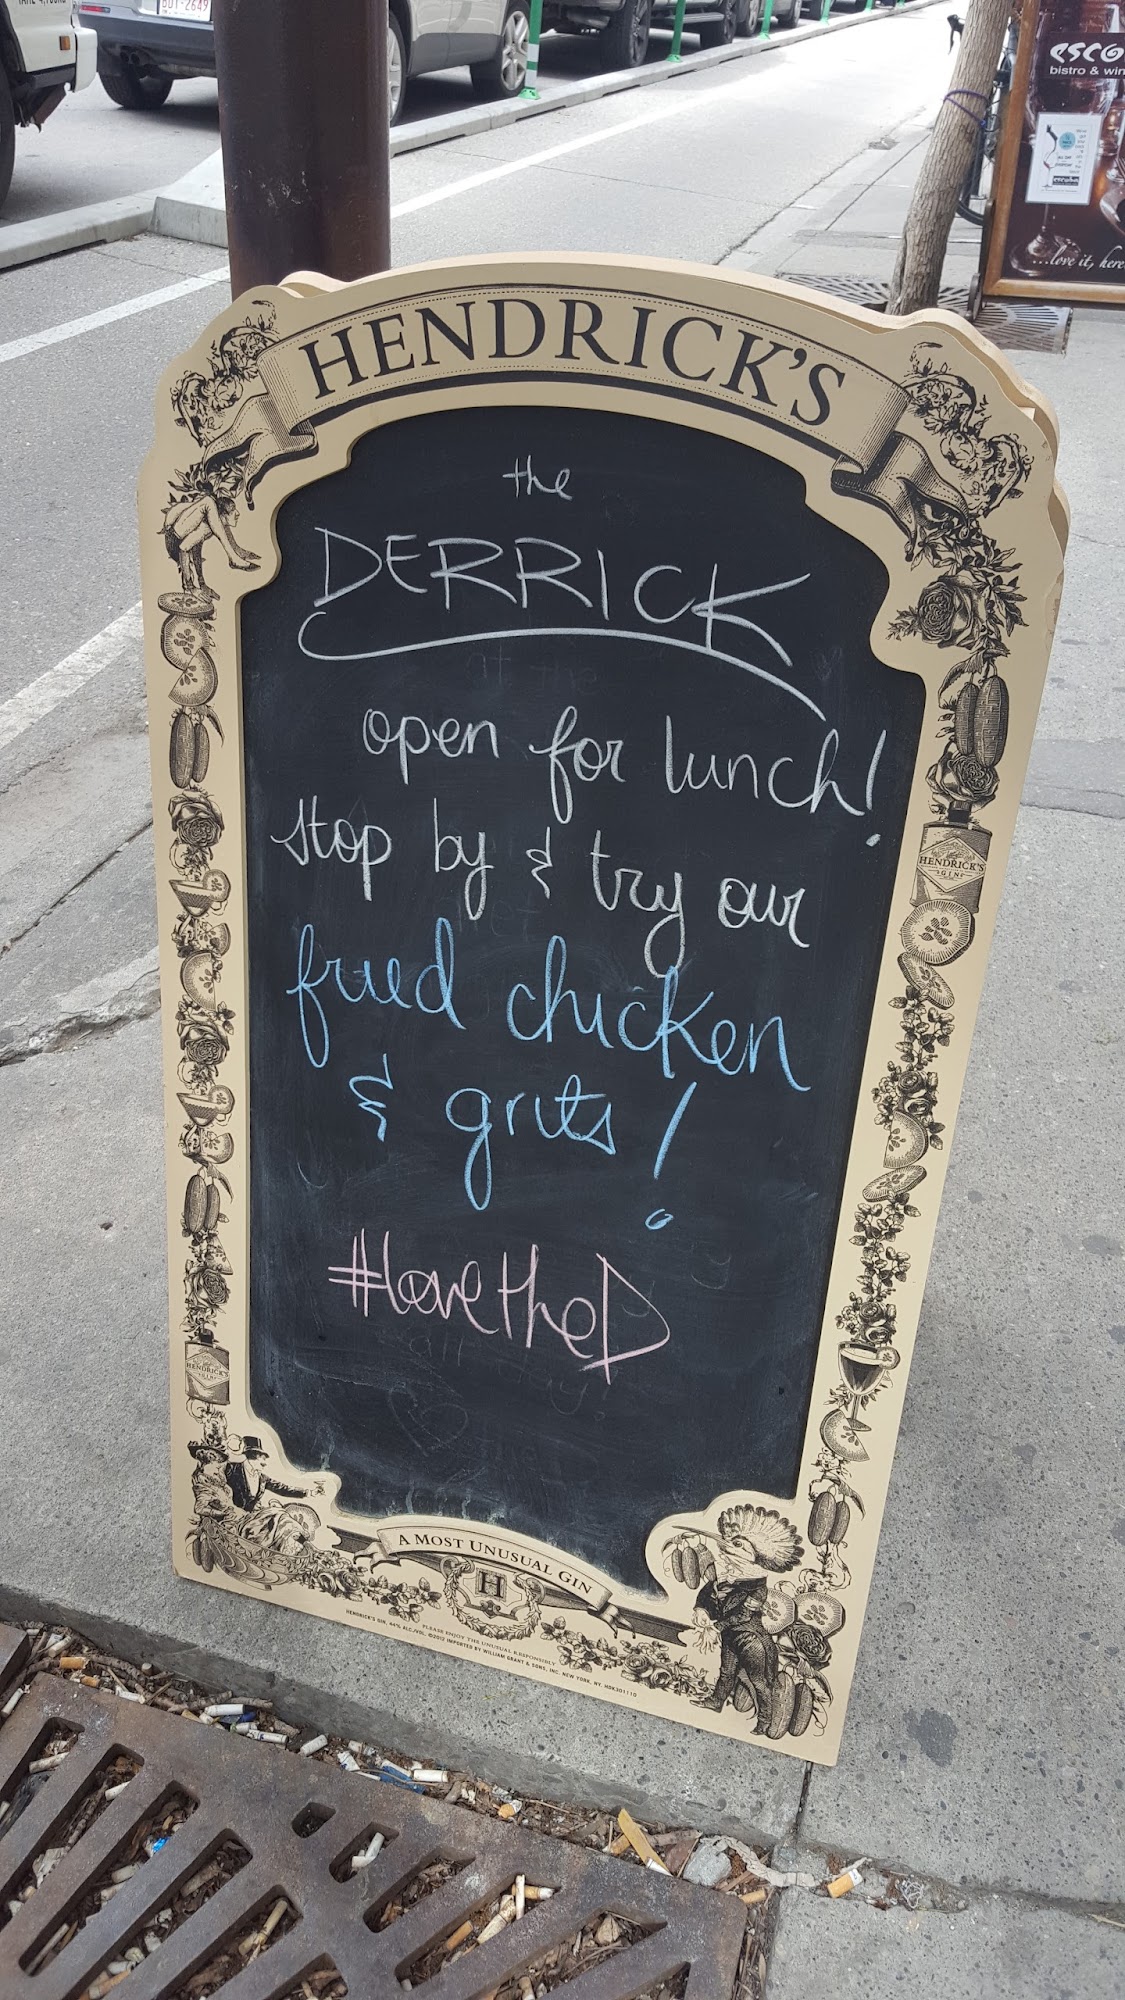 BDT-2649
esco
bistro & win
...love it, here
HENDRICK'S
the
DERRICK
open for lunch!
stop by & try our
fried chicken
& grits!
#lovetheD
HENDRICK'S
GIN
HENDRICK'S
A MOST UNUSUAL GIN
H
PLEASE ENJOY THE UNUSUAL RESPONSIBLY
HENDRICK'S GIN, 44% ALC./VOL. ©2012 IMPORTED BY WILLIAM GRANT & SONS, INC. NEW YORK, NY. HDK301110